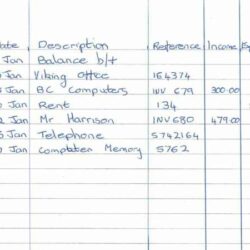 ate Description Reference Income Ex
Jan Balance b/f
Jan Viking office 164374
Jan BC Computers INV 679 300.00
Jan Rent 134
Jan Mr Harrison INV680 479.00
Jan Telephone 5742164
Jan Computer Memory 5762